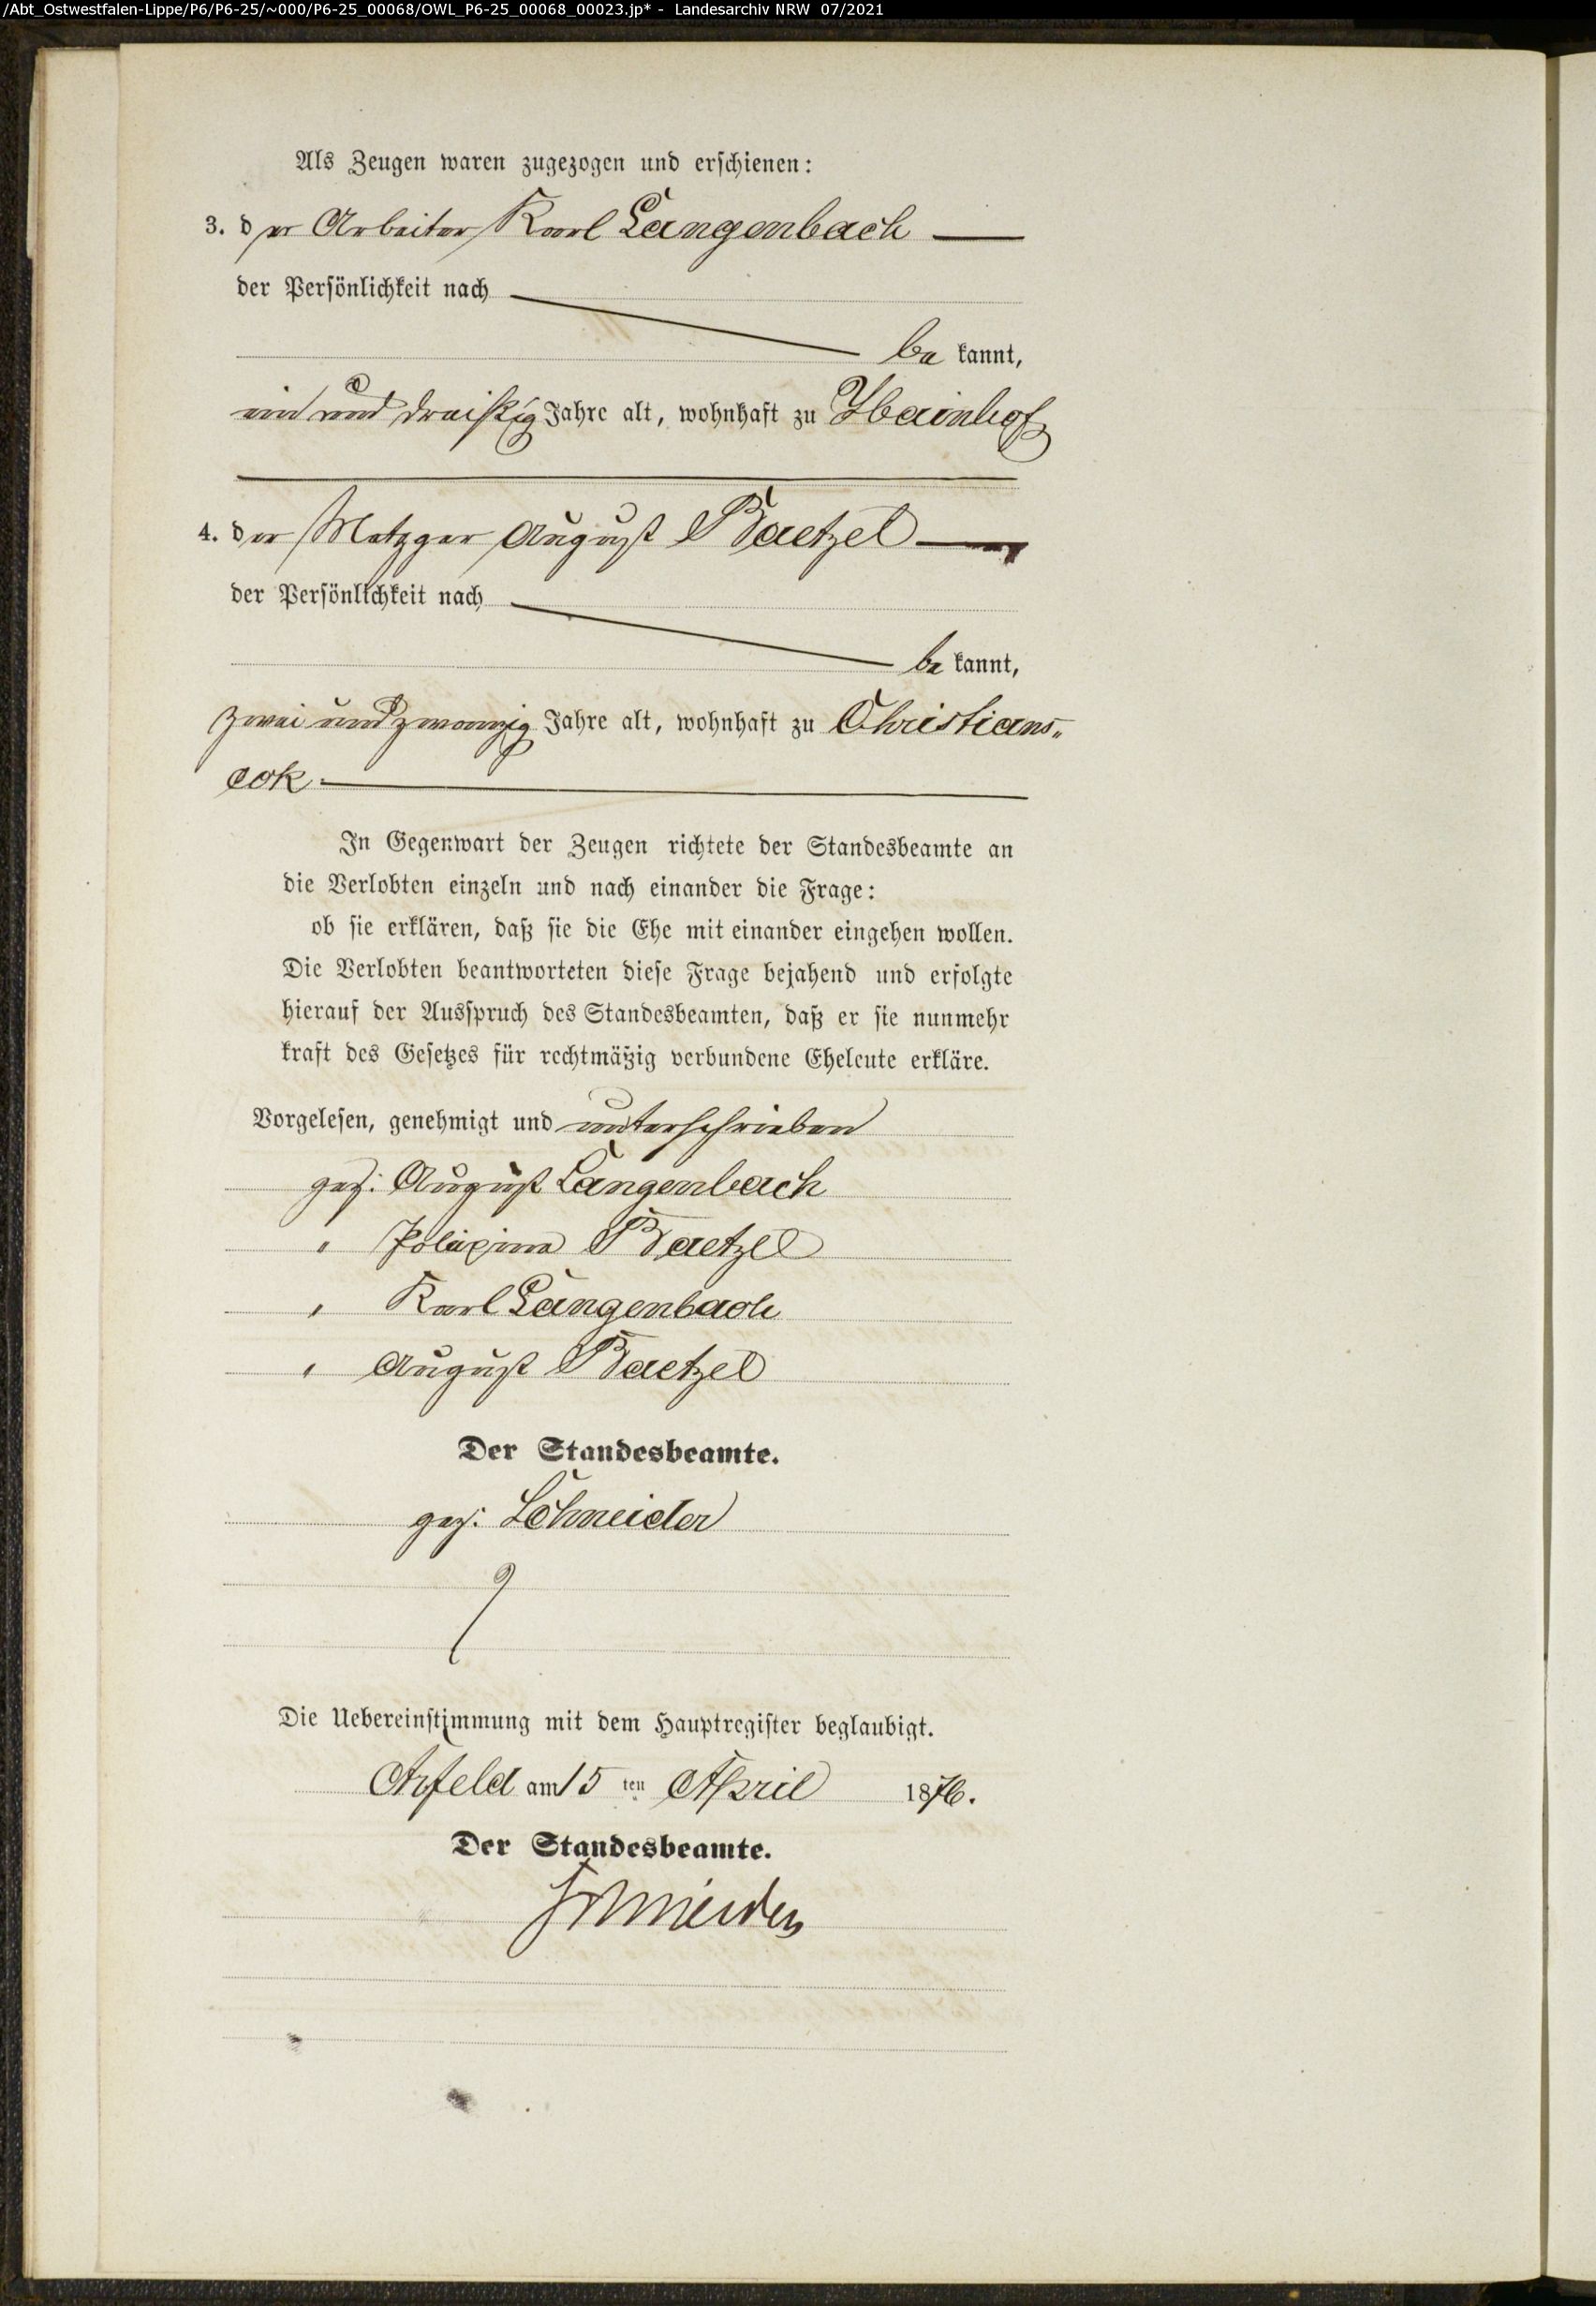 /Abt_Ostwestfalen-Lippe/P6/P6-25/~000/P6-25_00068/OWL_P6-25_00068_00023.jp* - Landesarchiv NRW 07/2021
Als Zeugen waren zugezogen und erschienen:
3. der Arbeiter Karl Langenbach
der Persönlichkeit nach
be kannt,
ein und dreißig Jahre alt, wohnhaft zu
4. der Metzger August Baetzel
der Persönlichkeit nach
be kannt,
zwei und zwanzig Jahre alt, wohnhaft zu Christians„
eck
In Gegenwart der Zeugen richtete der Standesbeamte an
die Verlobten einzeln und nach einander die Frage:
ob sie erklären, daß sie die Ehe mit einander eingehen wollen.
Die Verlobten beantworteten diese Frage bejahend und erfolgte
hierauf der Ausspruch des Standesbeamten, daß er sie nunmehr
kraft des Gesetzes für rechtmäßig verbundene Eheleute erkläre.
Vorgelesen, genehmigt und unterschrieben
gez: August Langenbach
" Polixina Baetzel
" Karl Langenbach
" August Baetzel
Der Standesbeamte.
gez: Schneider
Die Uebereinstimmung mit dem Hauptregister beglaubigt.
Arfeld am 15 ten April 1876.
Der Standesbeamte.
Schneider